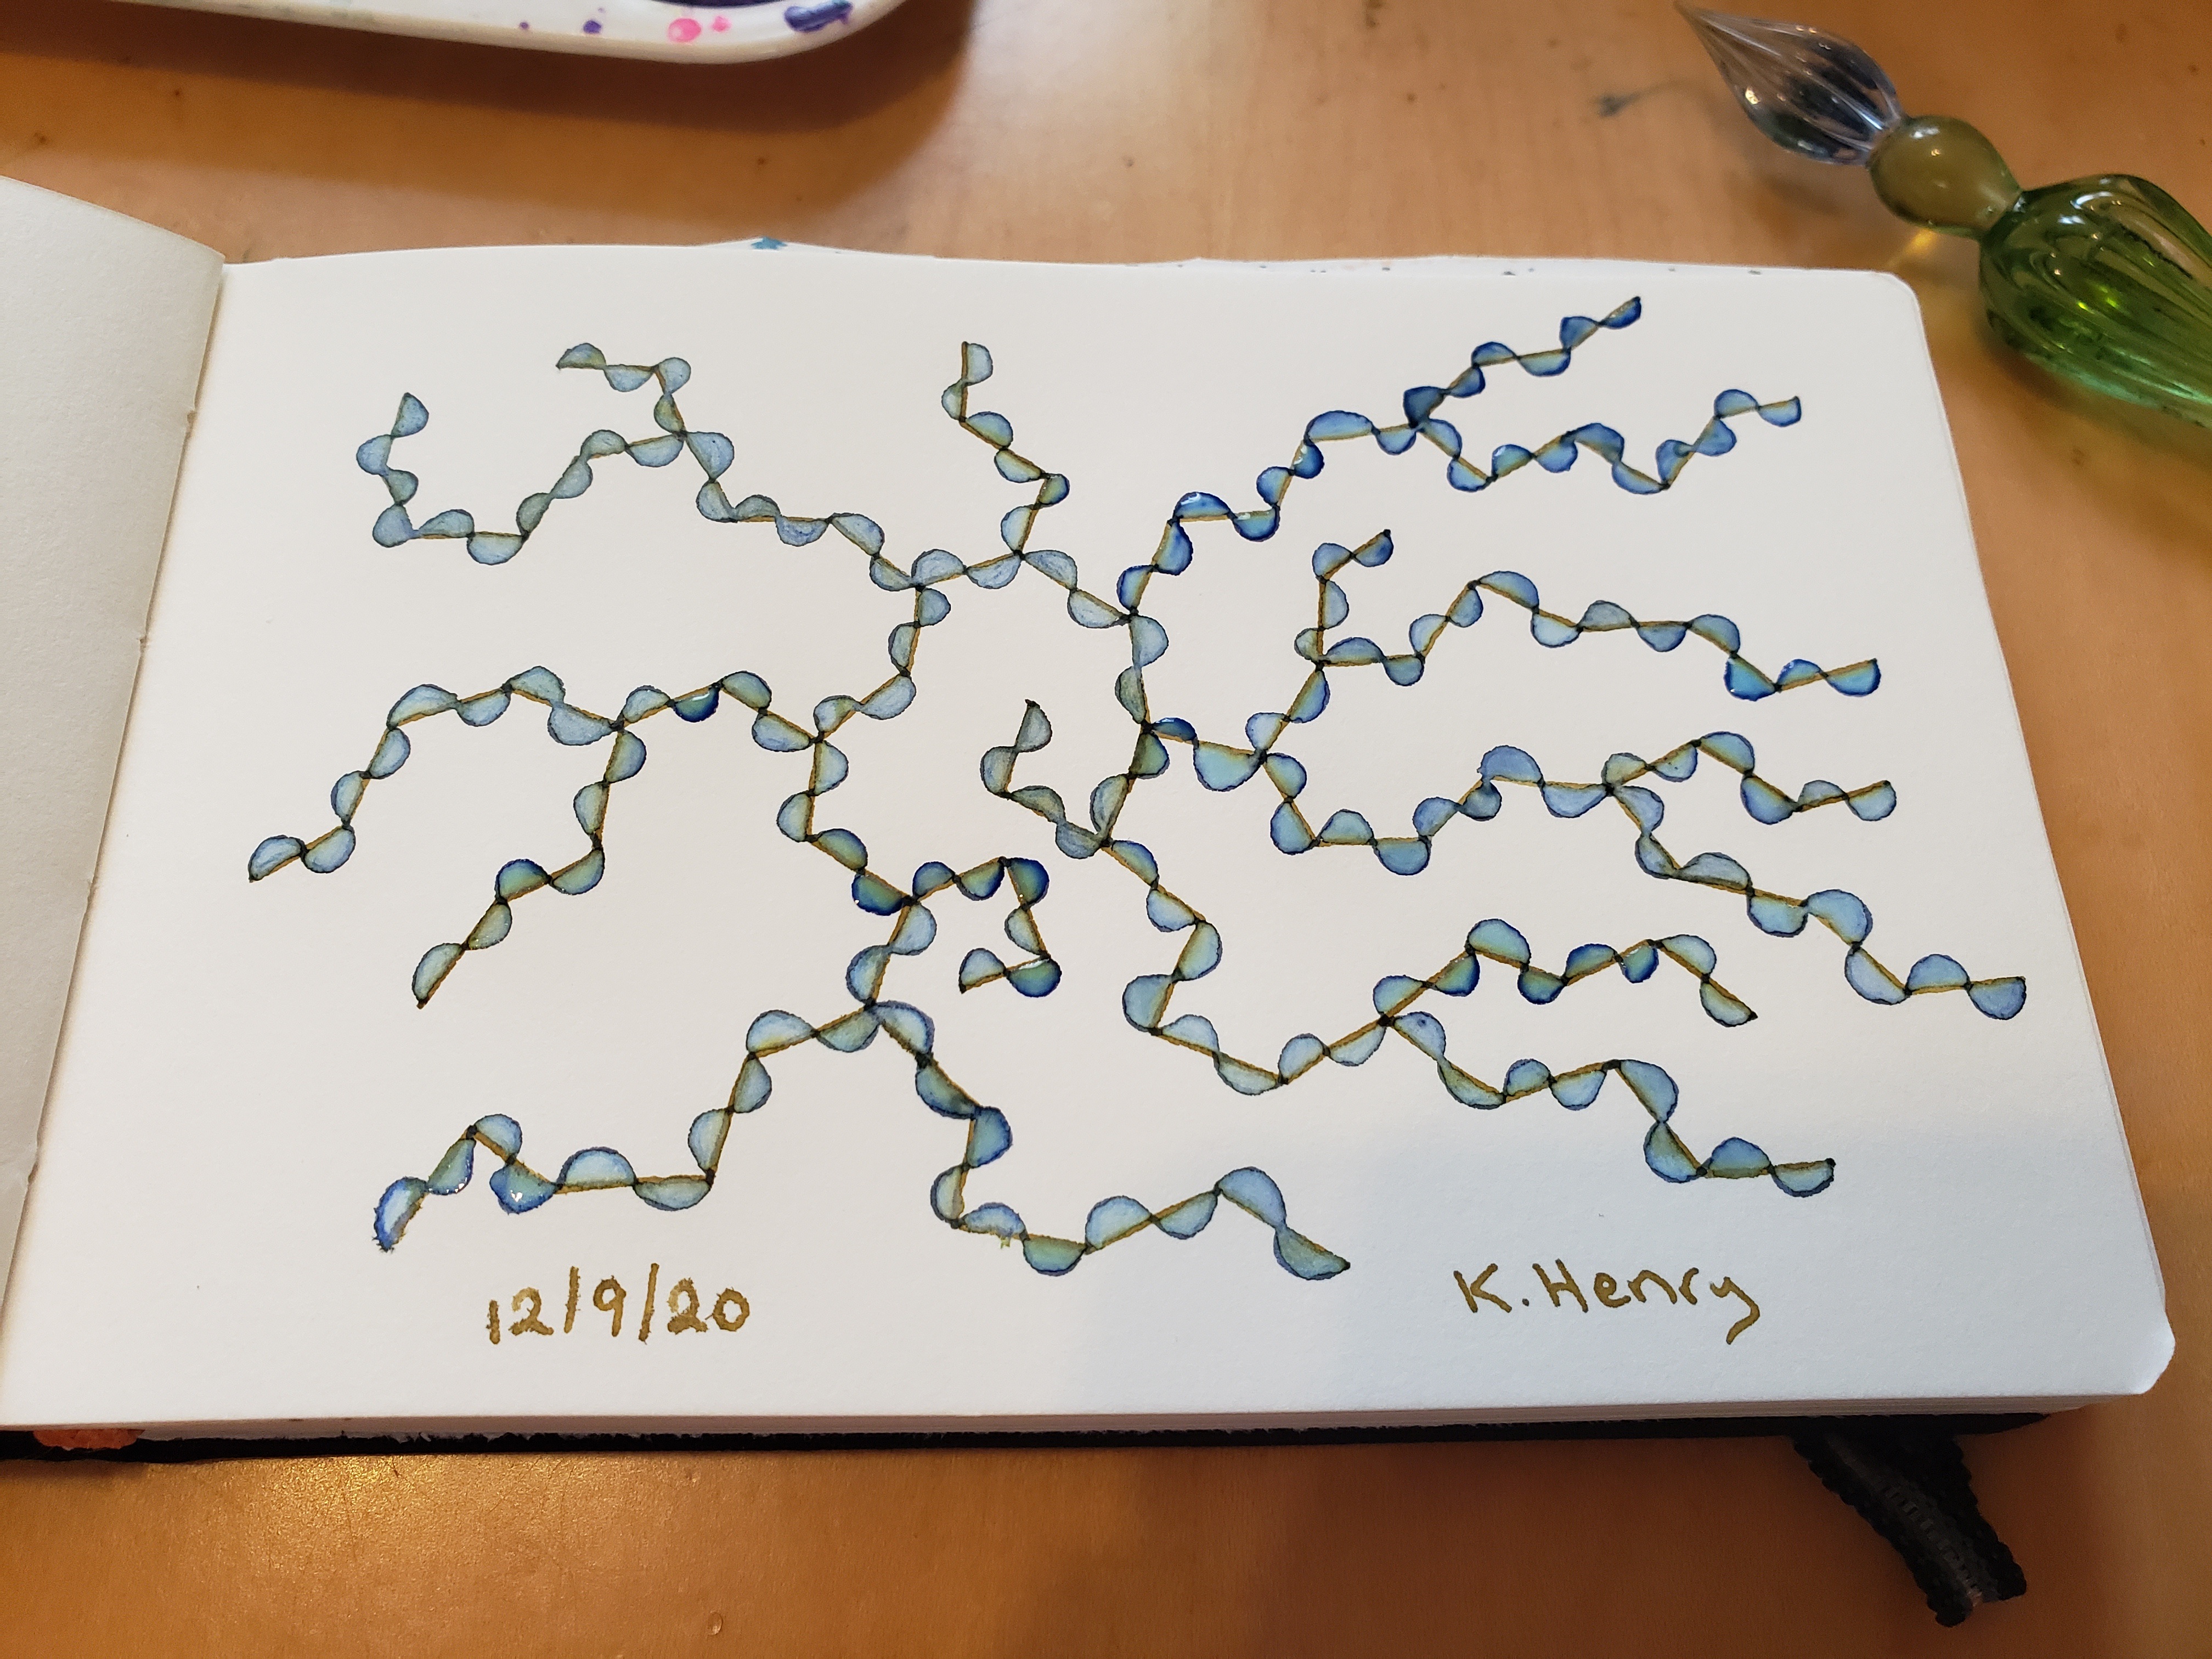 12/9/20
K. Henry